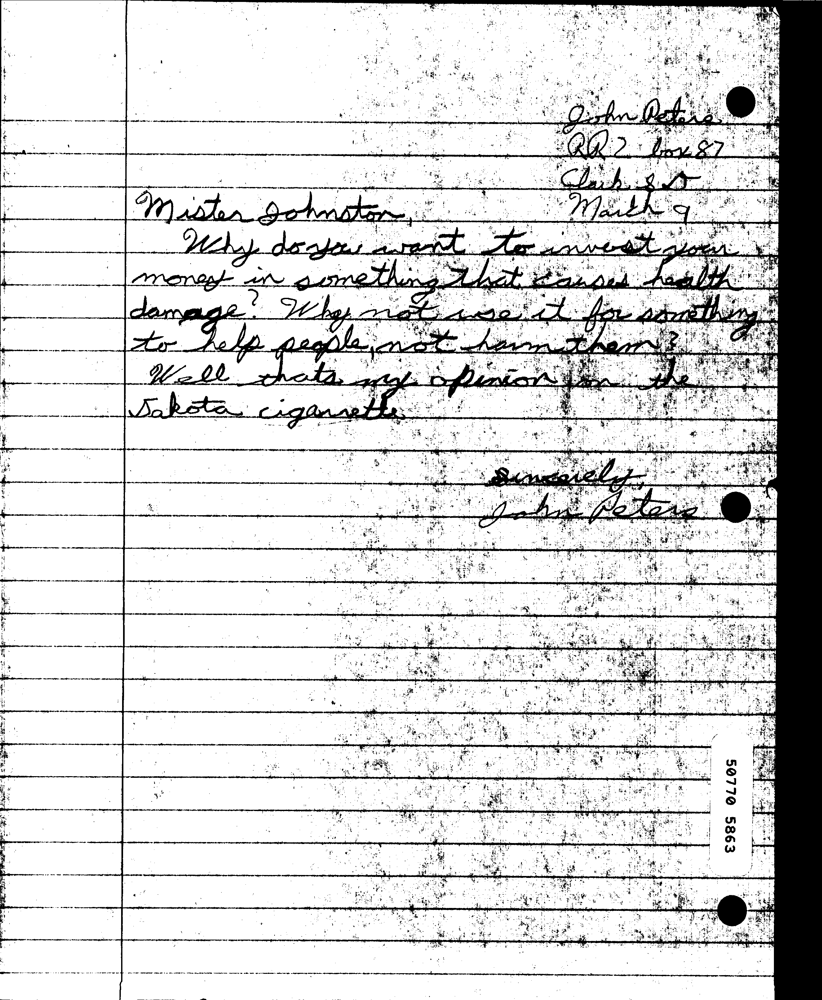 John Peters
RR 2 box 87
Clark SD
March 9
Mister Johnston,
Why do you want to invest your
money in something that causes health
damage? Why not use it for something
to help people, not harm them?
Well thats my opinion on the
Dakota cigarrette.
sincerely,
John Peters
50770 5863